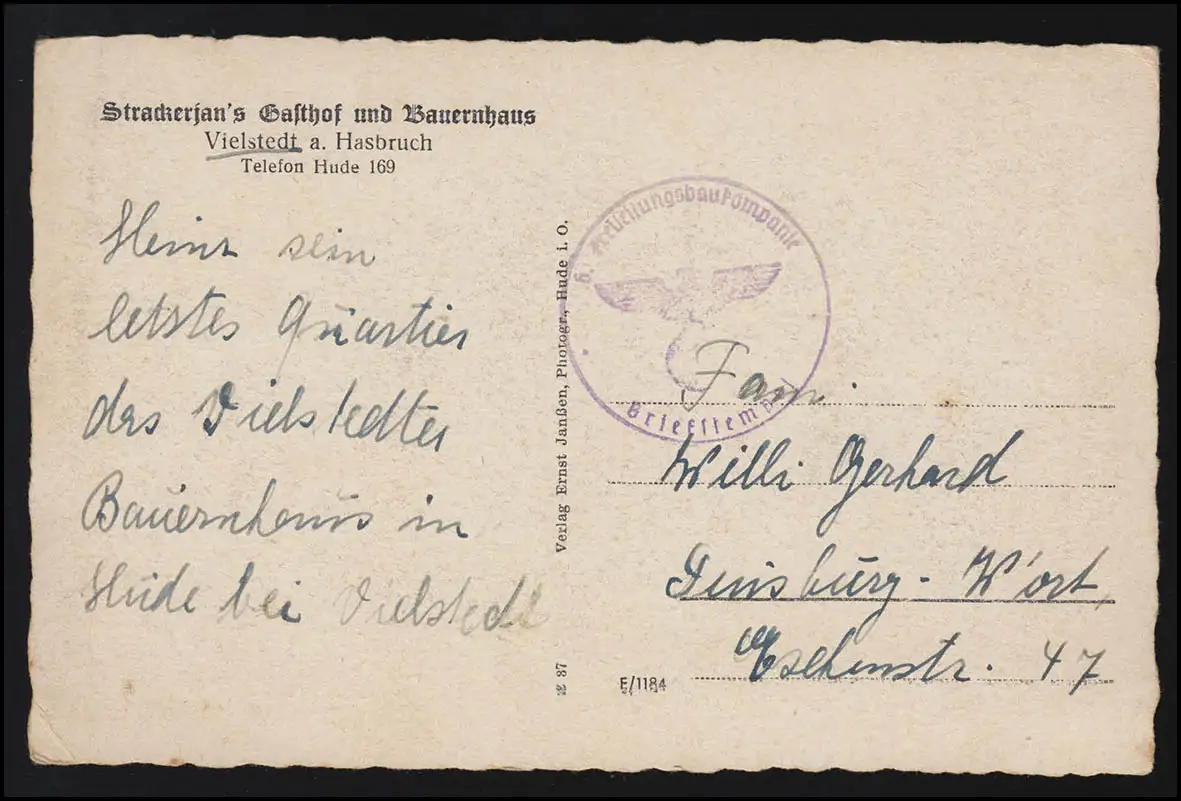 Strackerjan's Gasthof und Bauernhaus
Vielstedt a. Hasbruch
Telefon Hude 169
Heinz sein
letztes Quartier
das Vielstedter
Bauernhaus in
Hude bei Vielstedt
Verlag Ernst Janßen, Photogr., Hude i. O.
37
E/1184
Briefstempel
Fam.
Willi Gerhard
Duisburg - W'ort,
Eschenstr. 47